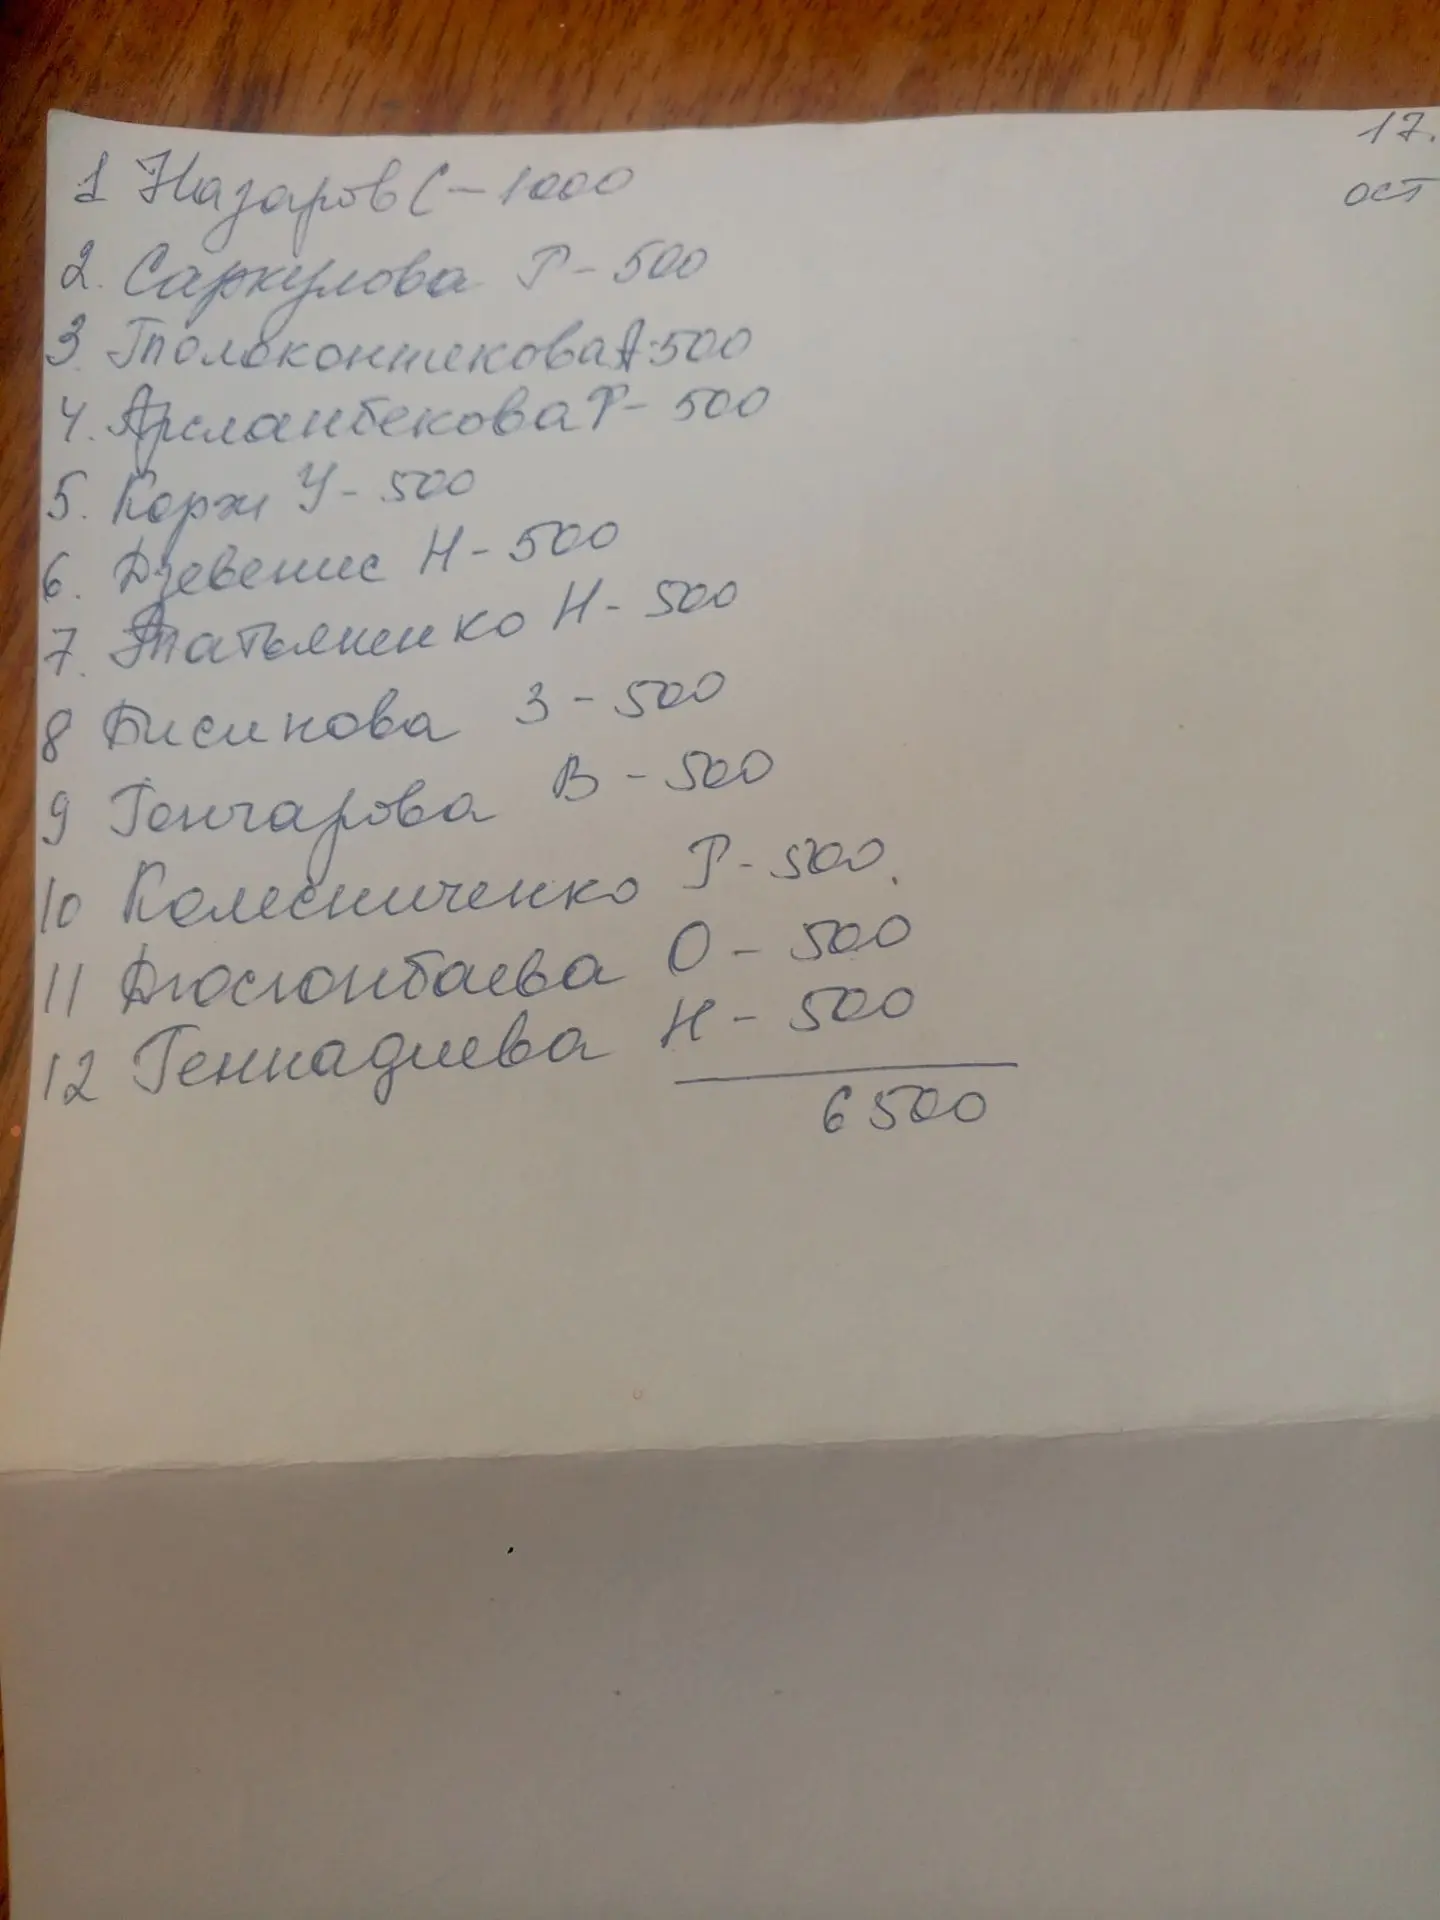 17.
ост
1 Назаров С - 1000
2. Саркулова Р - 500
3. Толоконникова А - 500
4. Арсланбекова Р - 500
5. Корж У - 500
6. Дзевенис Н - 500
7. Татьяненко Н - 500
8 Бисинова З - 500
9 Гончарова В - 500
10 Колесниченко Р - 500.
11 Дюсюнбаева О - 500
12 Геннадиева Н - 500
6500